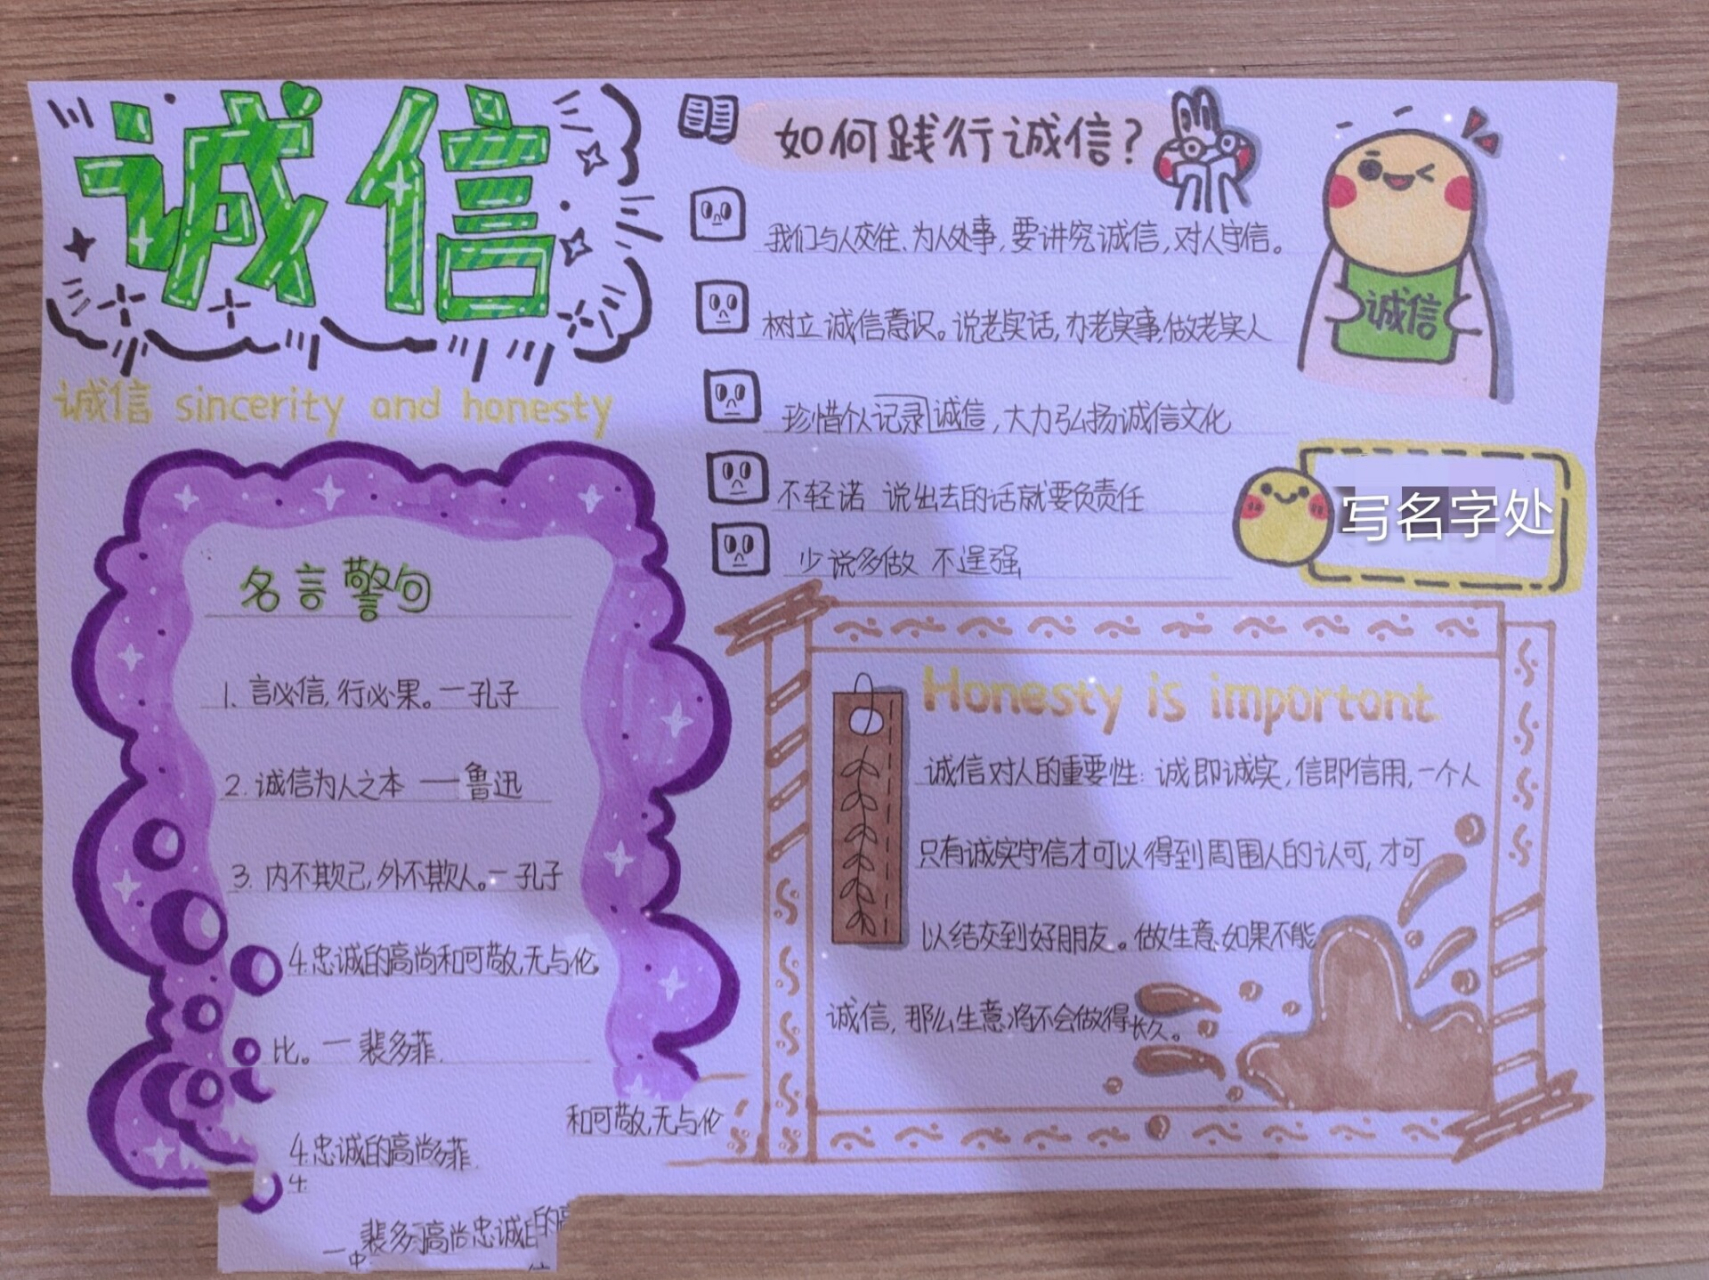 诚信
诚信 sincerity and honesty
名言警句
1. 言必信,行必果。一孔子
2. 诚信为人之本 一一鲁迅
3. 内不欺己,外不欺人。一孔子
4.忠诚的高尚和可敬,无与伦
比。一 裴多菲.
4.忠诚的高尚多菲.
和可敬,无与伦
如何践行诚信?
我们与人交往、为人处事,要讲究诚信,对人守信。
树立诚信意识。说老实话,办老实事,做老实人
珍惜个人记录诚信,大力弘扬诚信文化
不轻诺 说出去的话就要负责任
少说多做 不逞强
诚信
写名字处
Honesty is important
诚信对人的重要性: 诚即诚实,信即信用,一个人
只有诚实守信才可以得到周围人的认可,才可
以结交到好朋友。做生意如果不能
诚信,那么生意将不会做得长久。